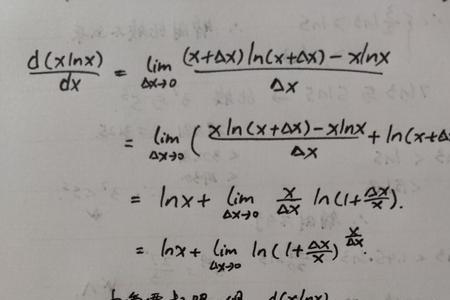 d(xlnx)/dx = lim Δx→0 ((x+Δx)ln(x+Δx) − xlnx)/Δx
= lim Δx→0 ( (xln(x+Δx) − xlnx)/Δx + ln(x+Δ
= lnx + lim Δx→0 x/Δx ln(1+Δx/x).
= lnx + lim Δx→0 ln(1+Δx/x)^(x/Δx).
d(xlnx)